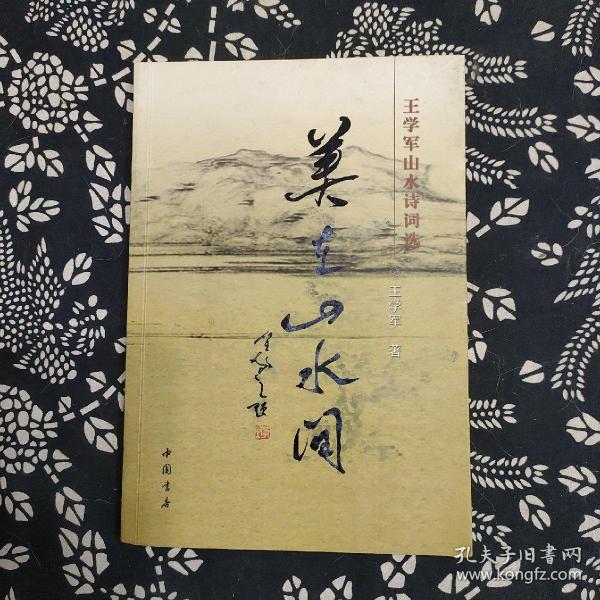 王学军山水诗词选
王学军 著
美在山水间
中国书店
孔夫子旧书网
www.kongfz.com